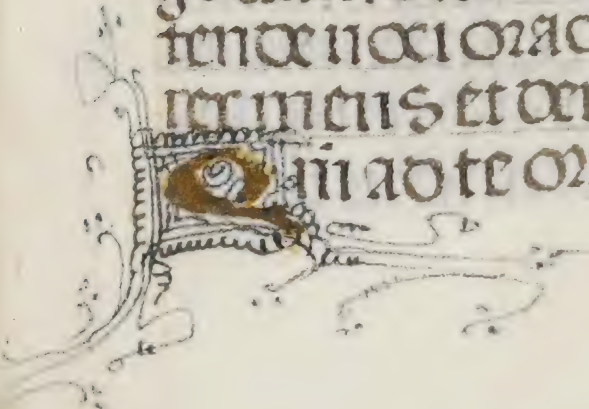 tende uoci orac
rex meus et deu
Qm̄ ad te or